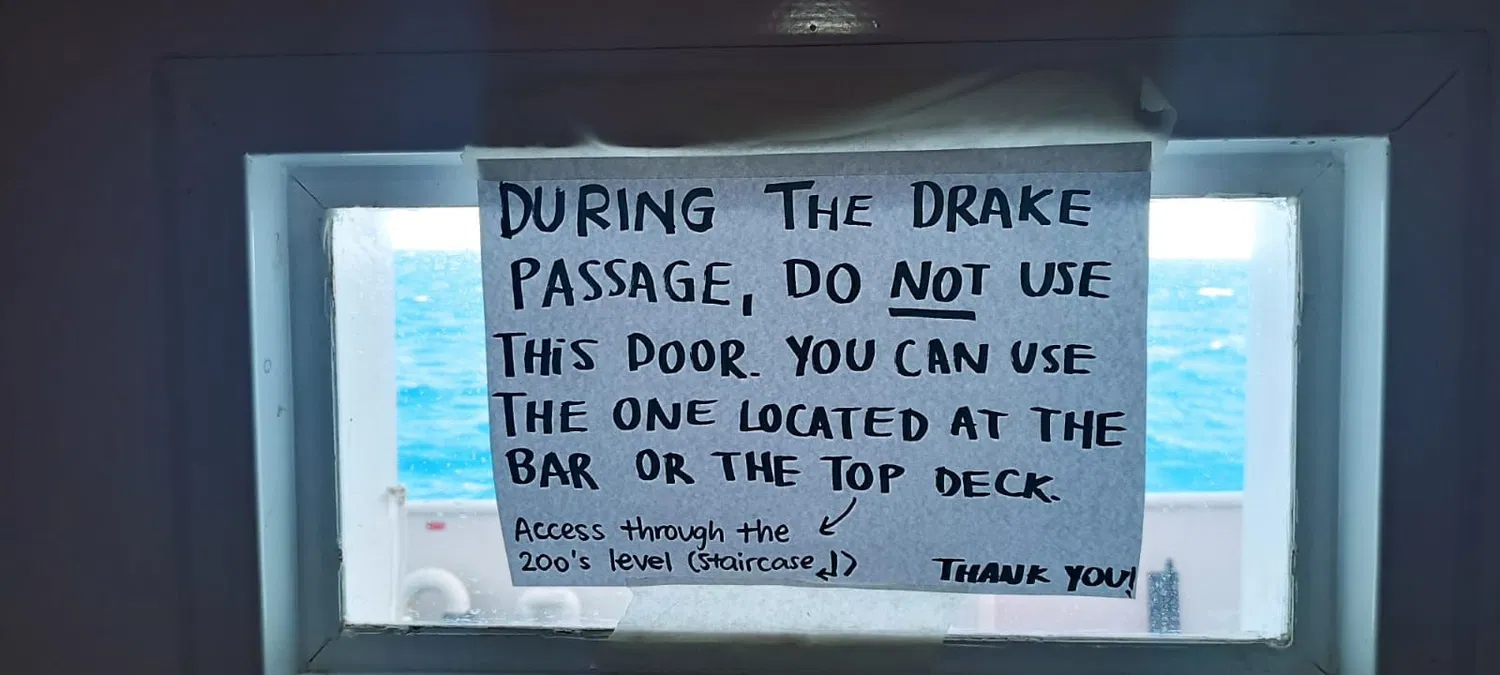 DURING THE DRAKE
PASSAGE, DO NOT USE
THIS DOOR. YOU CAN USE
THE ONE LOCATED AT THE
BAR OR THE TOP DECK.
Access through the
200's level (staircase ↲)
THANK YOU!